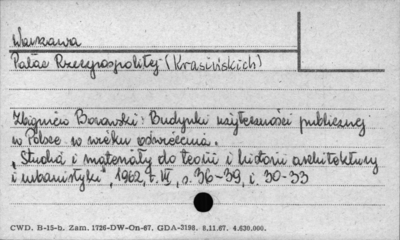 Warszawa
Pałac Rzeczypospolitej (Krasińskich)
Zbigniew Borawski: Budynki użyteczności publicznej
w Polsce w wieku oświecenia.
„Studia i materiały do teorii i historii architektury
i urbanistyki", 1962, t. III, s. 36-39, i. 30-33
CWD. B-15-b. Zam. 1726-DW-On-67. GDA-3198. 8.11.67. 4.630.000.